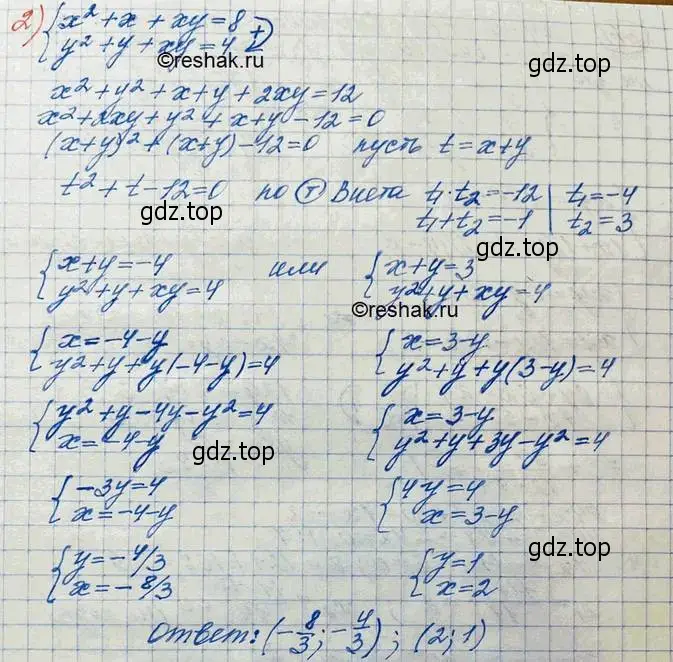 2) { x² + x + xy = 8
{ y² + y + xy = 4 (+)
©reshak.ru
x² + y² + x + y + 2xy = 12
x² + 2xy + y² + x + y - 12 = 0
(x+y)² + (x+y) - 12 = 0 пусть t = x+y
t² + t - 12 = 0 по (Т) Виета t₁·t₂ = -12 | t₁ = -4
t₁ + t₂ = -1 | t₂ = 3
gdz.top
gdz.top
{ x+y = -4 или { x+y = 3
{ y² + y + xy = 4 { y² + y + xy = 4
©reshak.ru
{ x = -4-y { x = 3-y
{ y² + y + y(-4-y) = 4 { y² + y + y(3-y) = 4
{ y² + y - 4y - y² = 4 { x = 3-y
{ x = -4-y { y² + y + 3y - y² = 4
gdz.top
{ -3y = 4 { 4y = 4
{ x = -4-y { x = 3-y
gdz.top
{ y = -4/3 { y = 1
{ x = -8/3 { x = 2
Ответ: (-8/3; -4/3); (2; 1)
gdz.top